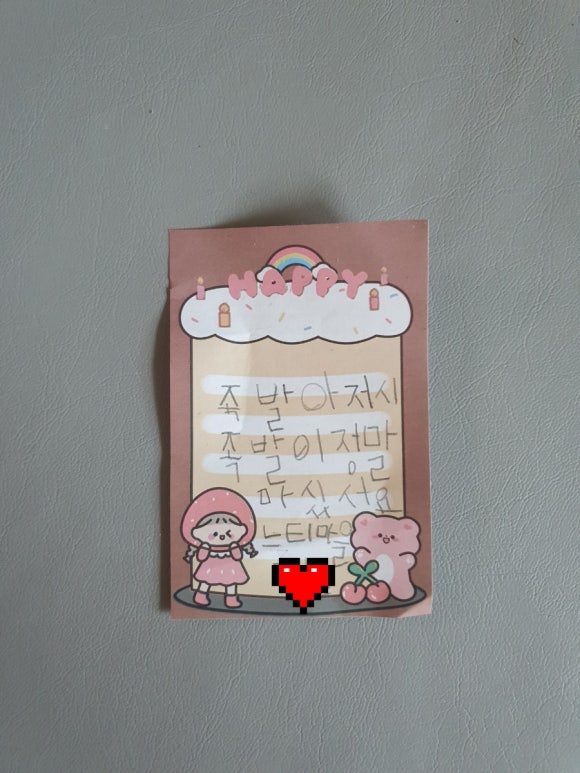 HAPPY
족발아저시
족발이정말
마싰서요
느티마을